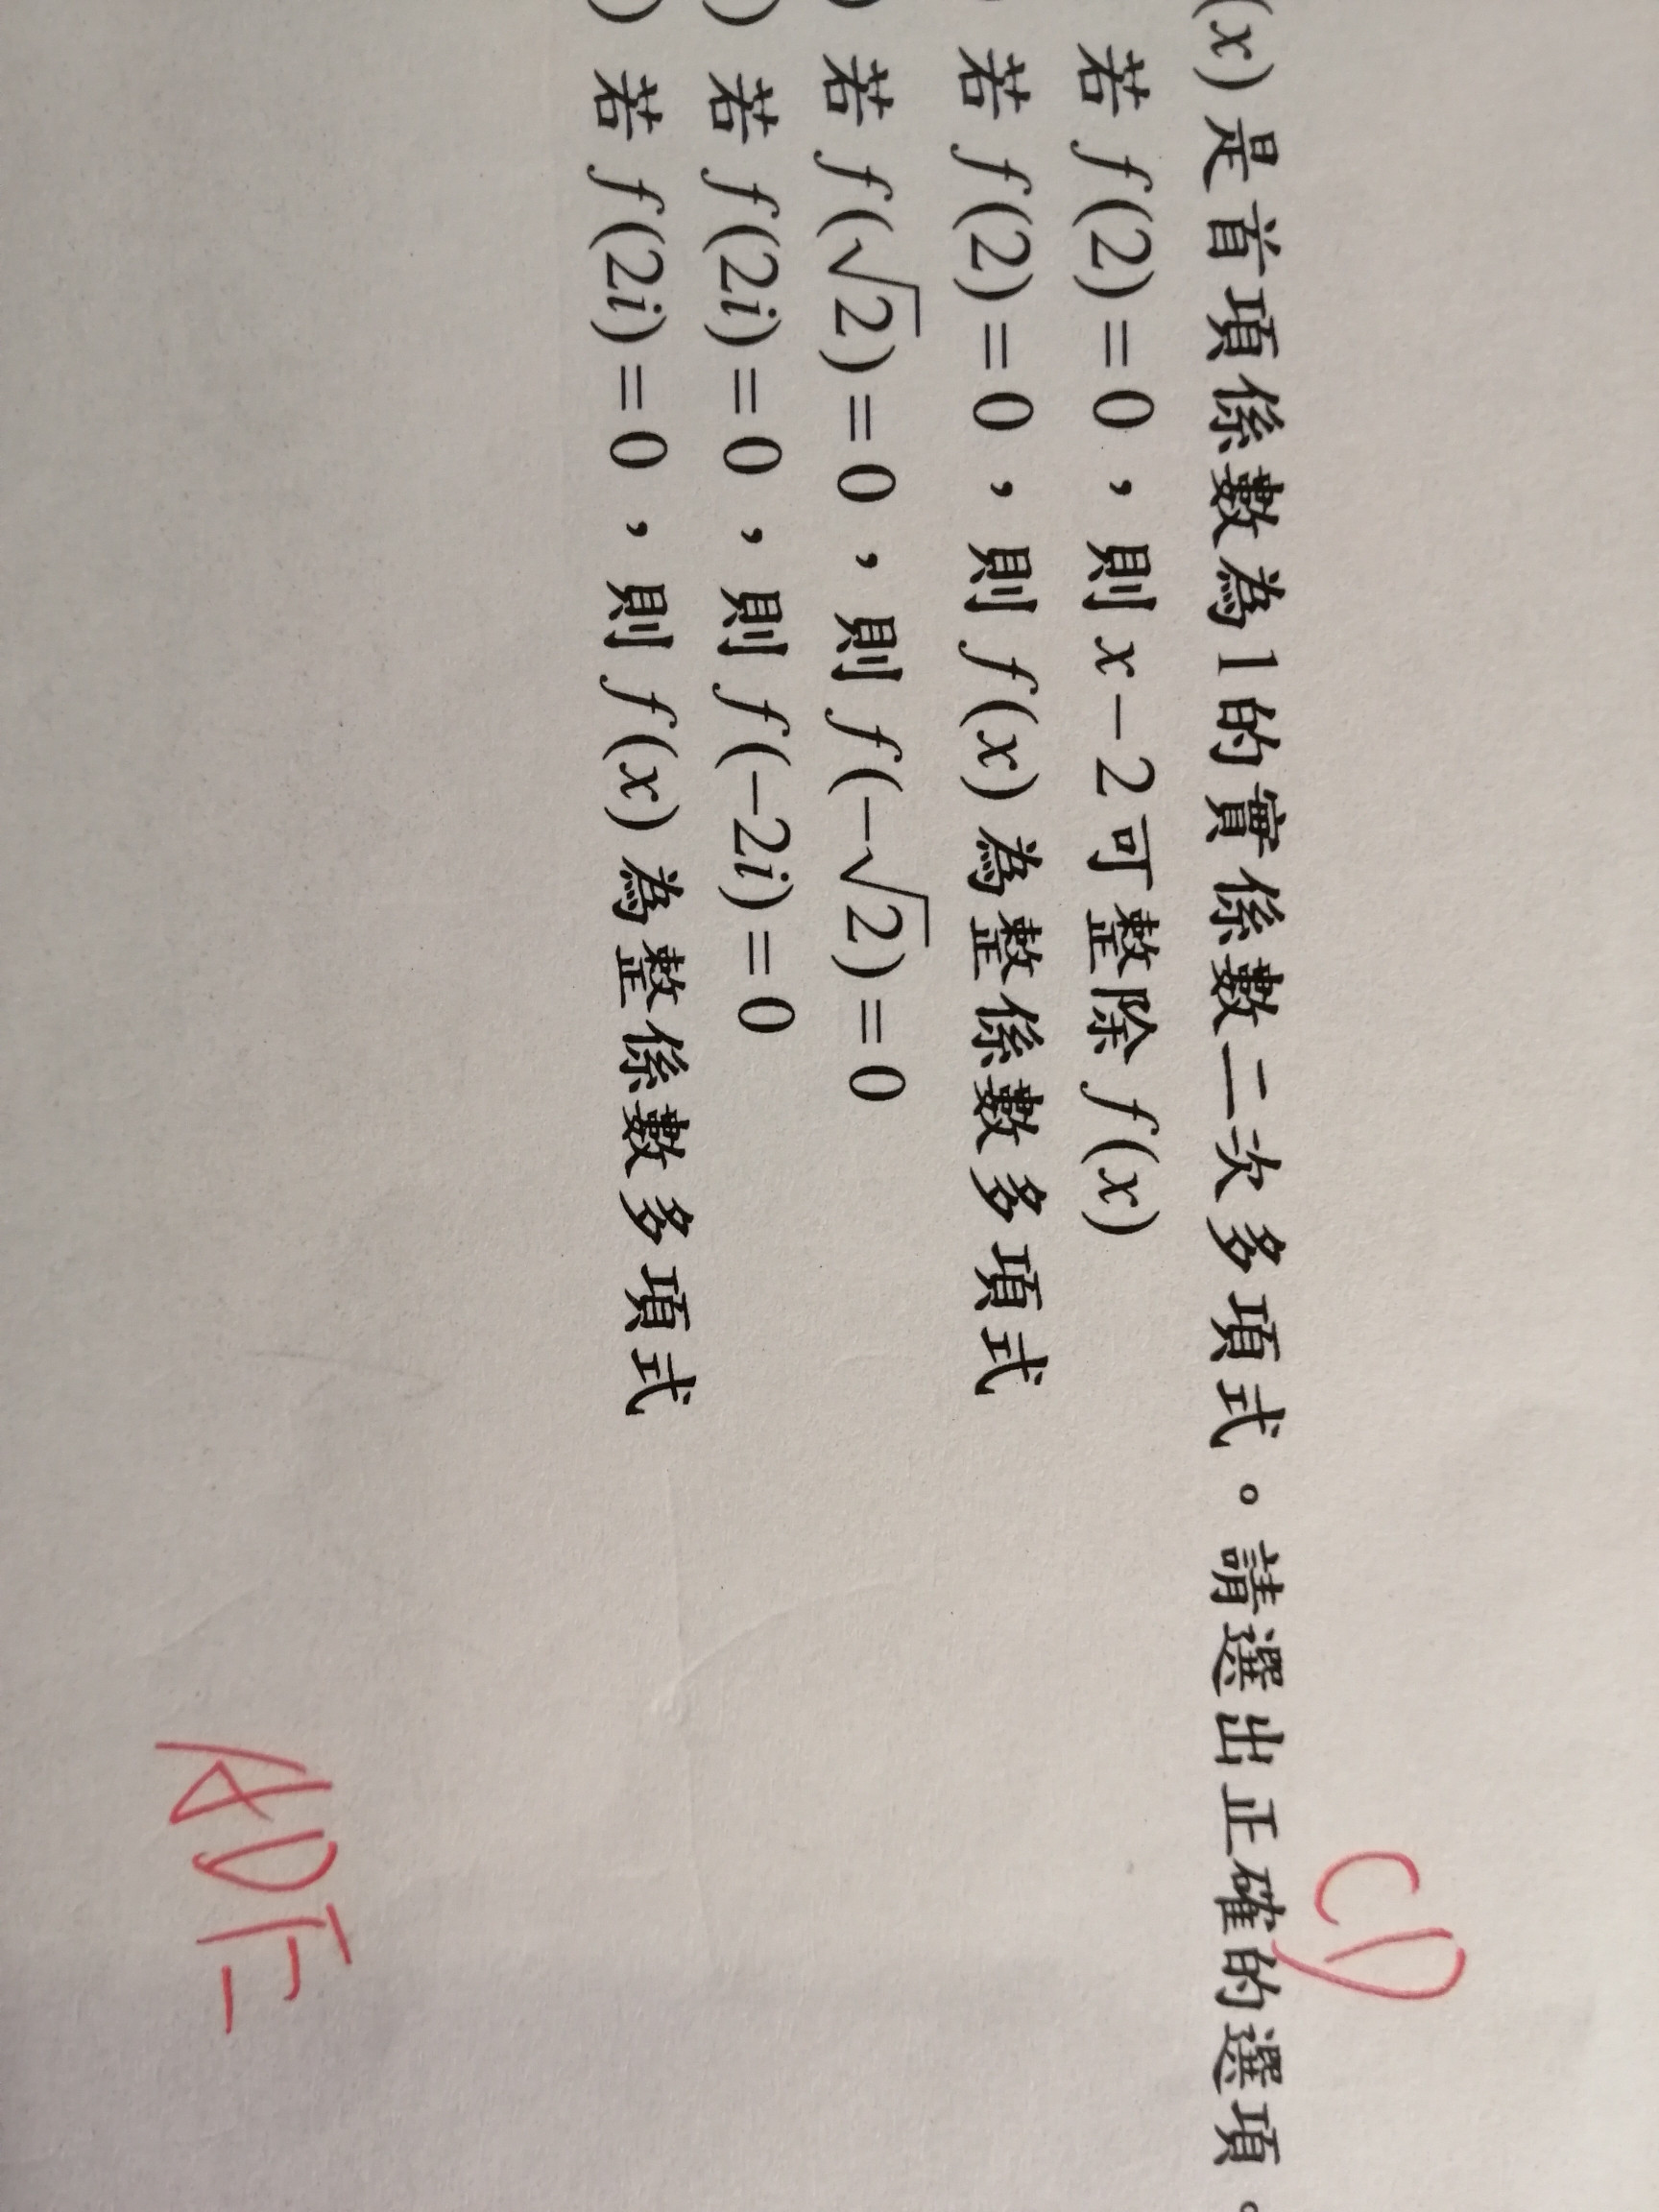 CD
(x)是首項係數為1的實係數二次多項式。請選出正確的選項。
若 f(2)=0,則 x−2可整除 f(x)
) 若 f(2)=0,則 f(x) 為整係數多項式
) 若 f(√2)=0,則 f(−√2)=0
) 若 f(2i)=0,則 f(−2i)=0
) 若 f(2i)=0,則 f(x) 為整係數多項式
ADE